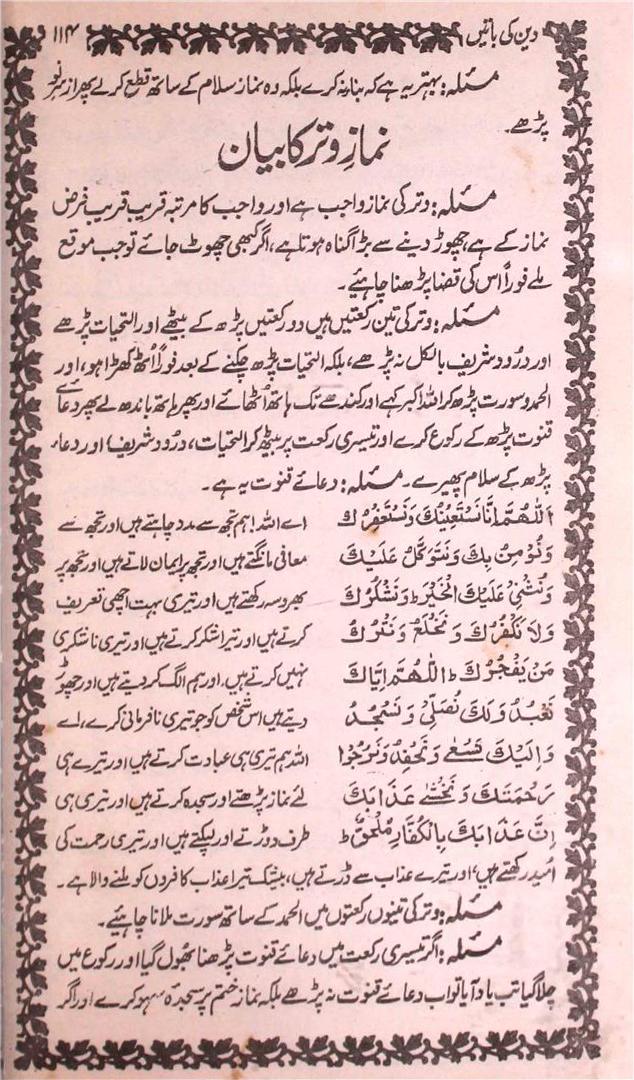 دین کی باتیں ۱۱۴
مسئلہ: بہتر یہ ہے کہ بنا نہ کرے بلکہ وہ نماز سلام کے ساتھ قطع کر لے پھر از سر نو
پڑھے۔
نمازِ وتر کا بیان
مسئلہ: وتر کی نماز واجب ہے اور واجب کا مرتبہ قریب قریب فرض
نماز کے ہے، چھوڑ دینے سے بڑا گناہ ہوتا ہے، اگر کبھی چھوٹ جائے تو جب موقع
ملے فوراً اس کی قضا پڑھنا چاہیئے۔
مسئلہ: وتر کی تین رکعتیں ہیں دو رکعتیں پڑھ کے بیٹھے اور التحیات پڑھے
اور درود شریف بالکل نہ پڑھے، بلکہ التحیات پڑھ چکنے کے بعد فوراً اٹھ کھڑا ہو، اور
الحمد و سورت پڑھ کر اللہ اکبر کہے اور کندھے تک ہاتھ اُٹھائے اور پھر ہاتھ باندھ لے پھر دعائے
قنوت پڑھ کے رکوع کرے اور تیسری رکعت پر بیٹھ کر التحیات، درود شریف اور دعاء
پڑھ کے سلام پھیرے۔ مسئلہ: دعائے قنوت یہ ہے۔
اَللّٰهُمَّ اِنَّا نَسْتَعِيْنُكَ وَنَسْتَغْفِرُكَ اے اللہ! ہم تجھ سے مدد چاہتے ہیں اور تجھ سے
وَنُؤْمِنُ بِكَ وَنَتَوَكَّلُ عَلَيْكَ معافی مانگتے ہیں اور تجھ پر ایمان لاتے ہیں اور تجھ پر
وَنُثْنِيْ عَلَيْكَ الْخَيْرَ ط وَنَشْكُرُكَ بھروسہ رکھتے ہیں اور تیری بہت اچھی تعریف
وَلَا نَكْفُرُكَ وَنَخْلَعُ وَنَتْرُكُ کرتے ہیں اور تیرا شکر کرتے ہیں اور تیری ناشکری
مَنْ يَفْجُرُكَ ط اَللّٰهُمَّ اِيَّاكَ نہیں کرتے ہیں۔ اور ہم الگ کر دیتے ہیں اور چھوڑ
نَعْبُدُ وَلَكَ نُصَلِّيْ وَنَسْجُدُ دیتے ہیں اس شخص کو جو تیری نافرمانی کرے، اے
وَاِلَيْكَ نَسْعٰى وَنَحْفِدُ وَنَرْجُوْا اللہ ہم تیری ہی عبادت کرتے ہیں اور تیرے ہی
رَحْمَتَكَ وَنَخْشٰى عَذَابَكَ لئے نماز پڑھتے اور سجدہ کرتے ہیں اور تیری ہی
اِنَّ عَذَابَكَ بِالْكُفَّارِ مُلْحِقٌ ط طرف دوڑتے اور لپکتے ہیں اور تیری رحمت کی
امید رکھتے ہیں، اور تیرے عذاب سے ڈرتے ہیں، بیشک تیرا عذاب کافروں کو ملنے والا ہے۔
مسئلہ: وتر کی تینوں رکعتوں میں الحمد کے ساتھ سورت ملانا چاہیئے۔
مسئلہ: اگر تیسری رکعت میں دعائے قنوت پڑھنا بھول گیا اور رکوع میں
چلا گیا تب یاد آیا تو اب دعائے قنوت نہ پڑھے بلکہ نماز ختم پر سجدہ سہو کرے اور اگر